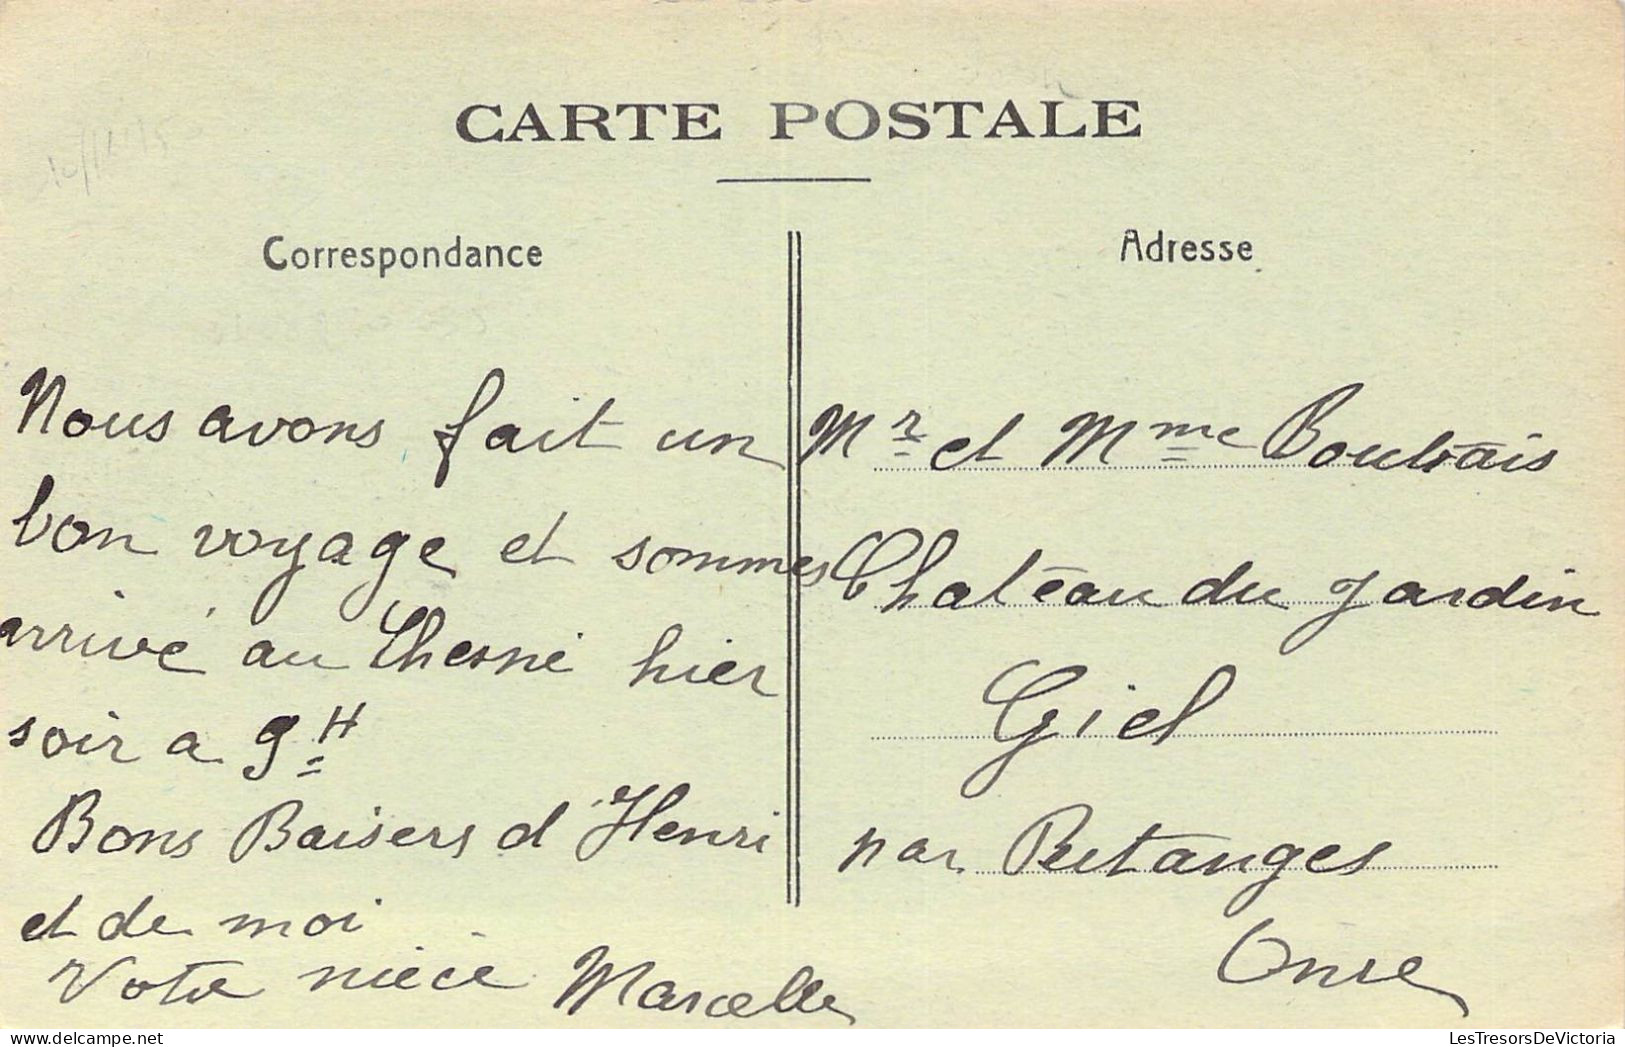 CARTE POSTALE
Correspondance
Nous avons fait un
bon voyage et sommes
arrivé au Chesne hier
soir a 9H
Bons Baisers d'Henri
et de moi
Votre nièce Marcelle
Adresse
Mr et Mme
Chateau du Jardin
Giel
par Putanges
Orne
LesTresorsDeVictoria